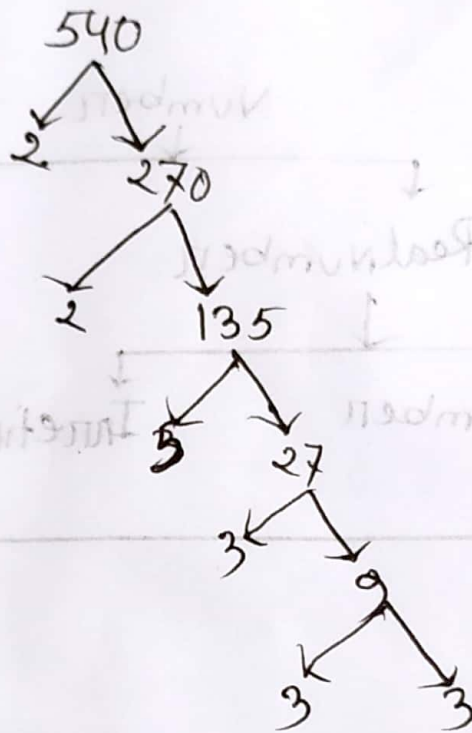 540
2 270
2 135
5 27
3 9
3 3